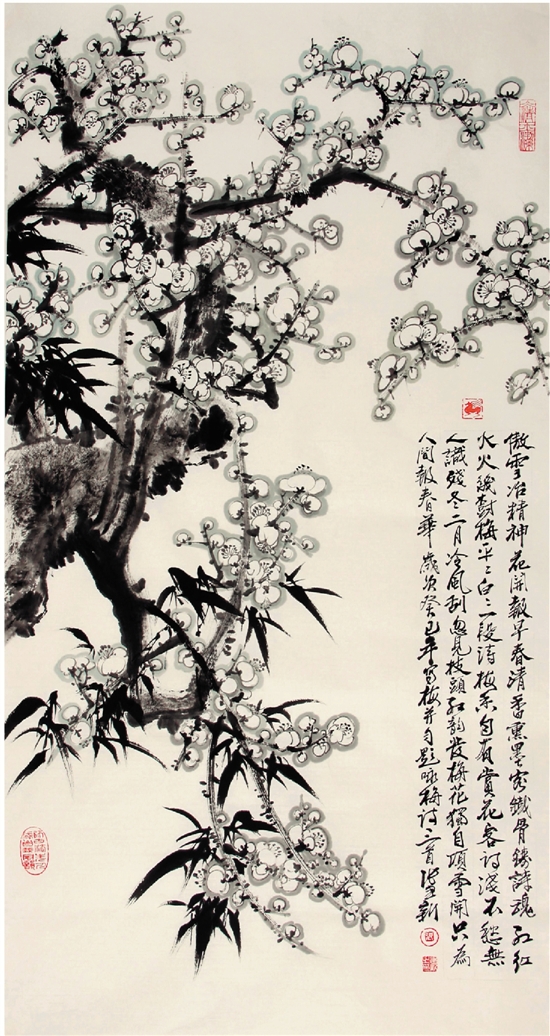 傲雪冶精神花開報早春清香熏墨客鐵骨鑄詩魂 紅紅
火火幾樹梅平平白白二段詩梅不自有賞花客詩淺不愁無
人識 殘冬二月冷風刮忽見枝頭紅韵發梅花獨自頂雪開只為
人間報春華 歲次癸巳年寫梅并自題咏梅詩三首